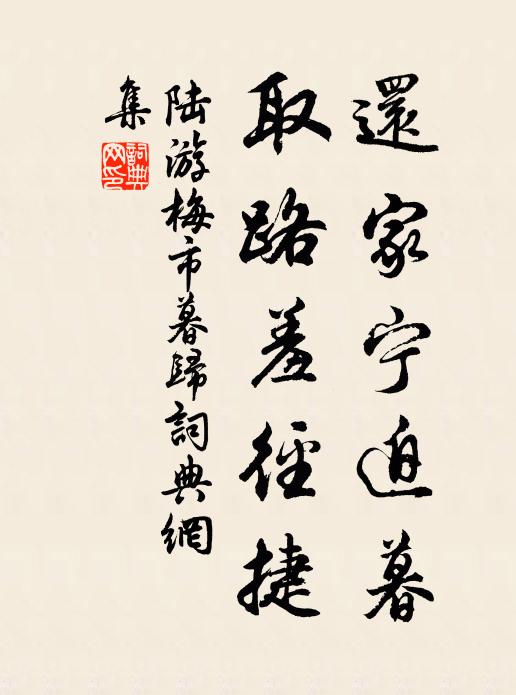 還家宁迫暮
取路羞徑捷
陸游梅市暮歸詞典網
集
詞典網印